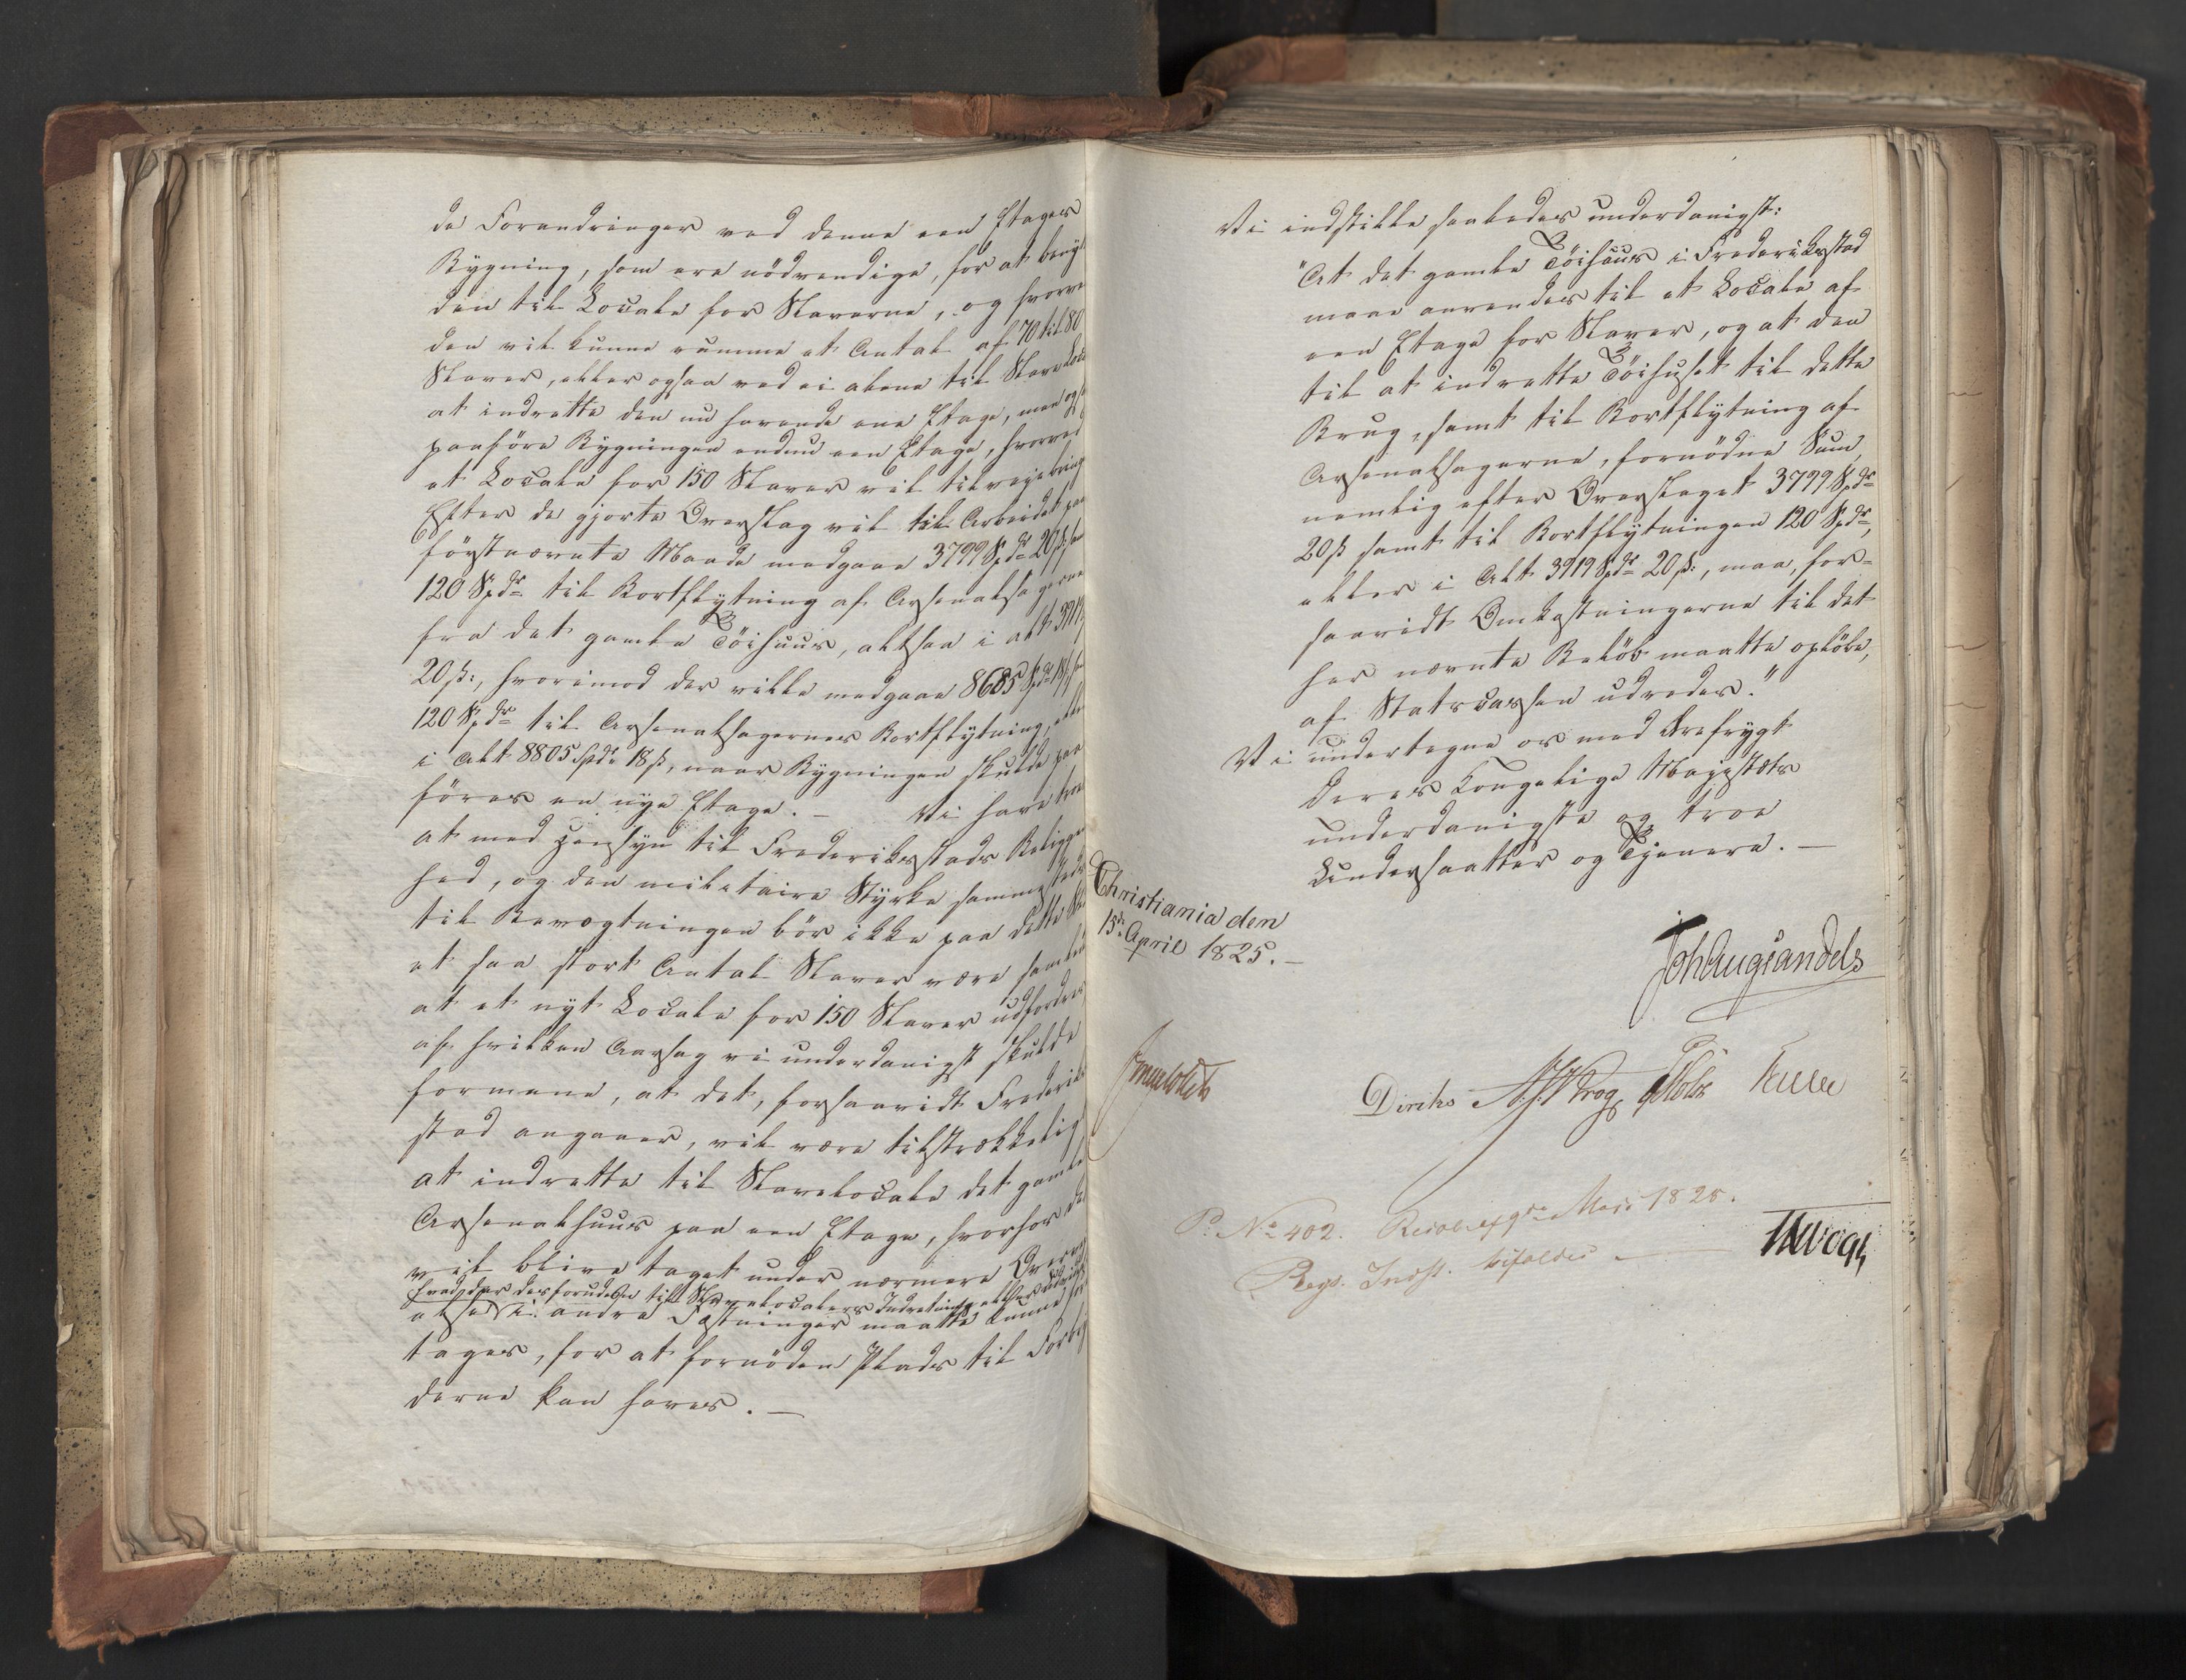 de Forandringer ved denne een Etages
Bygning, som ere nödvendige, for at beny
den til Locale for Slaverne, og hvorve
den vil kunne rumme et Antal af 70 til 80
Slaver, eller ogsaa ved ei alene til Slave Loc
at indrette den nu havende ene Etage, men ogs
paaföre Bygningen endnu een Etage, hvorved
et Locale for 150 Slaver vil tilvejebring
Efter de gjorte Overslag vil til Arbeidet paa
förstnævnte Maade medgaae 3799 Spdr 20 ß, sa
120 Spdr til Bortflytning af Arsenalsagerne
fra det gamle Töihuus, altsaa i alt 3919
20 ß:, hvorimod der ville medgaae 8685 Spdr 18 ß sa
120 Spdr til Arsenalsagernes Bortflytning, elle
i Alt 8805 Spdr 18 ß, naar Bygningen skulde paa
föres en nye Etage. – Vi have troe
at med Hensyn til Frederikstads Beliggen
hed, og den militaire Styrke sammesteds
til Bevogtningen bör ikke paa dette St
et saa stort Antal Slaver være samlet
at et nyt Locale for 150 Slaver udfordres
af hvilken Aarsag vi underdanigst skulde
formene, at det, forsaavidt Frederik
stad angaaer, vil være tilstrækkelig
at indrette til Slavelocale det gamle
Arsenalhuus paa een Etage, hvorfor det
vil blive taget under nærmere Overve
hvad der desforuden til Slavelocalers Indretning eller Udvid
else i andre Fæstninger maatte kunne for
tages, for at fornöden Plads til Forbry
derne kan haves. –
Vi indstille saaledes underdanigst:
"At det gamle Töihuus i Frederikstad
maae anvendes til et Locale af
een Etage for Slaver, og at den
til at indrette Töihuset til dette
Brug, samt til Bortflytning af
Arsenalsagerne, fornödne Sum,
nemlig efter Overslaget 3799 Spdr
20 ß samt til Bortflytningen 120 Spdr,
eller i Alt 3919 Spdr 20 ß:, maa, for-
saavidt Omkostningerne til det
her nævnte Belöb maatte oplöbe,
af Statscassen udredes."
Vi undertegne os med Ærefrygt
Deres Kongelige Majestæts
underdanigste og troe
Undersaatter og Tjenere. –
Christiania den
15de April 1825. –
Joh Aug Sandels
Diriks Krog
P: No 402. Resol. af 9de Maji 1825.
Regs. Indst. bifaldes –